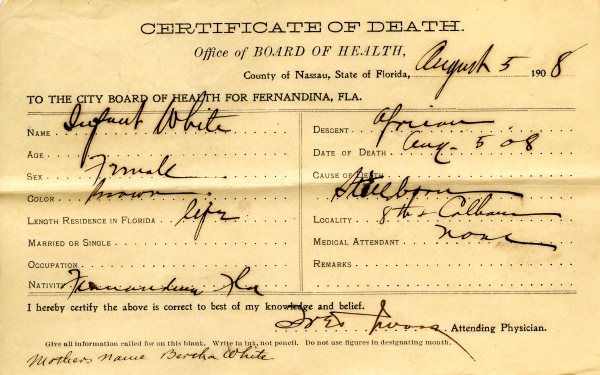 CERTIFICATE OF DEATH.
Office of BOARD OF HEALTH,
County of Nassau, State of Florida, August 5 1908
TO THE CITY BOARD OF HEALTH FOR FERNANDINA, FLA.
NAME Infant White
AGE
SEX Female
COLOR Brown
LENGTH RESIDENCE IN FLORIDA life
MARRIED OR SINGLE
OCCUPATION
NATIVITY Fernandina Fla
DESCENT African
DATE OF DEATH Aug 5 08
CAUSE OF DEATH Stillborn
LOCALITY 8th & Calhoun
MEDICAL ATTENDANT None
REMARKS
I hereby certify the above is correct to best of my knowledge and belief.
Attending Physician.
Give all information called for on this blank. Write in ink, not pencil. Do not use figures in designating month.
Mothers name Bertha White